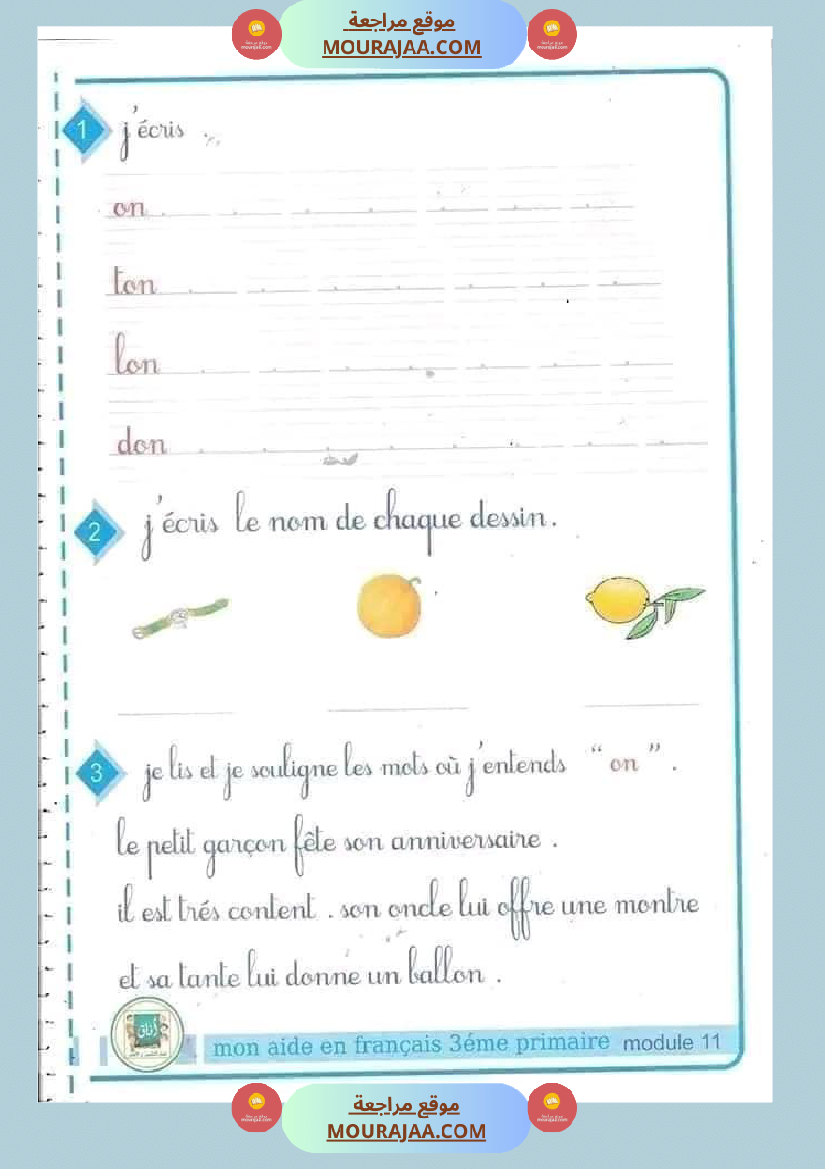 موقع مراجعة
MOURAJAA.COM
1 j'écris
on
ton
lon
don
2 j'écris le nom de chaque dessin.
3 je lis et je souligne les mots où j'entends “on”.
le petit garçon fête son anniversaire.
il est trés content. son oncle lui offre une montre
et sa tante lui donne un ballon.
mon aide en français 3éme primaire module 11
موقع مراجعة
MOURAJAA.COM